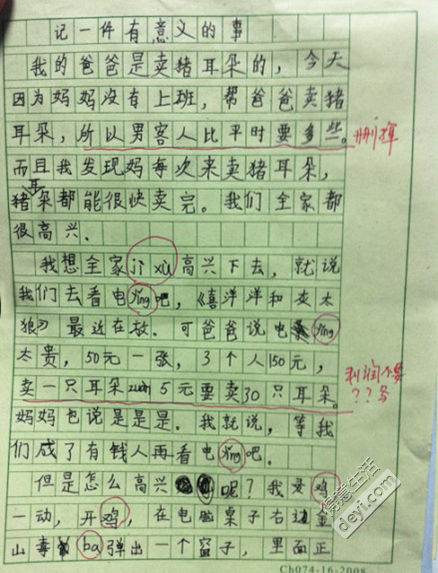 记一件有意义的事
我的爸爸是卖猪耳朵的，今天
因为妈妈没有上班，帮爸爸卖猪
耳朵，所以男客人比平时要多些。 删掉
而且我发现妈每次来卖猪耳朵，
猪耳朵都能很快卖完。我们全家都
很高兴.
我想全家jì xù高兴下去，就说
我们去看电yǐng吧，《喜洋洋和灰太
狼》最近在放.可爸爸说电yǐng
太贵，50元一张，3个人150元，
卖一只耳朵zuàn5元要卖30只耳朵。
利润不要
??多
妈妈也说是是是.我就说，等我
们成了有钱人再看电yǐng吧.
但是怎么高兴呢？我灵鸡
一动，开鸡，在电脑桌子右边金
山毒bà弹出一个窗子，里面正
得意生活
deyi.com
Ch074-16-2008